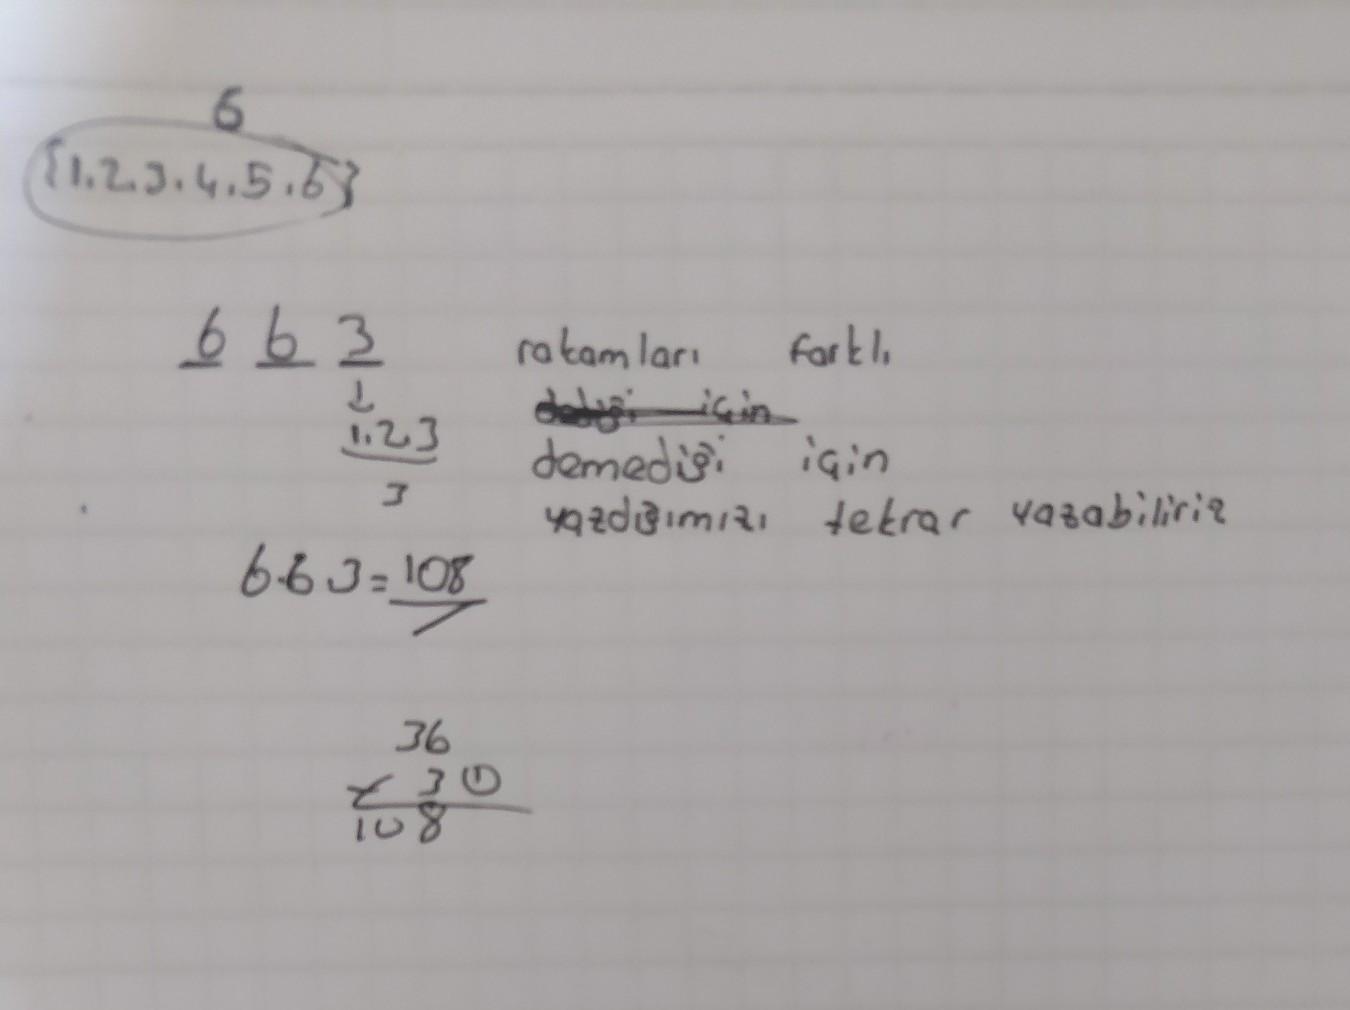 6
{1.2.3.4.5.6}
6 6 3 rakamları farklı
↓
1.2.3 demediği için
3 yazdığımızı tekrar yazabiliriz
6.6 3=108
36
x 3 ①
108